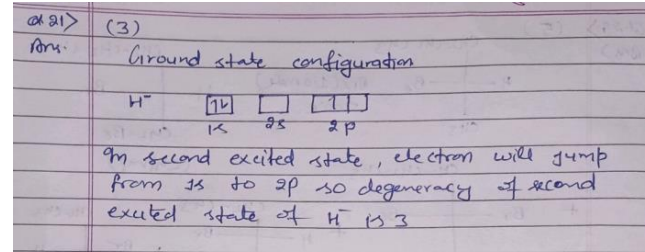 Q 21> (3)
Ans. Ground state configuration
H⁻ 1L
1s 2s 2p
In second excited state, electron will jump
from 1s to 2p so degeneracy of second
exuted state of H⁻ is 3